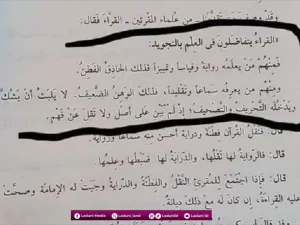 وقد وصف من تقدم من علماء المقرئين - القراء فقال:
«القراء يتفاضلون في العلم بالتجويد:
فمنهم من يعلمه رواية وقياسا وتمييزا فذلك الحاذق الفطن.
ومنهم من يعرفه سماعا وتقليدا، فذلك الوهن الضعيف. لا يلبث أن يشك
ويدخله التحريف والتصحيف؛ إذ لم يبن على أصل ولا نقل عن فهم.
قال: فنقل القرآن فطنة ودراية أحسن منه سماعا ورواية.
قال: فالرواية لها نقلها، والدراية لها ضبطها وعلمها
قال: فإذا اجتمع للمقرئ النقل والفطنة والدراية وجبت له الإمامة وصحت
عليه القراءة، إن كان له مع ذلك ديانة.
Ladani Media Ladani_tamil Ladanild Ladani ID